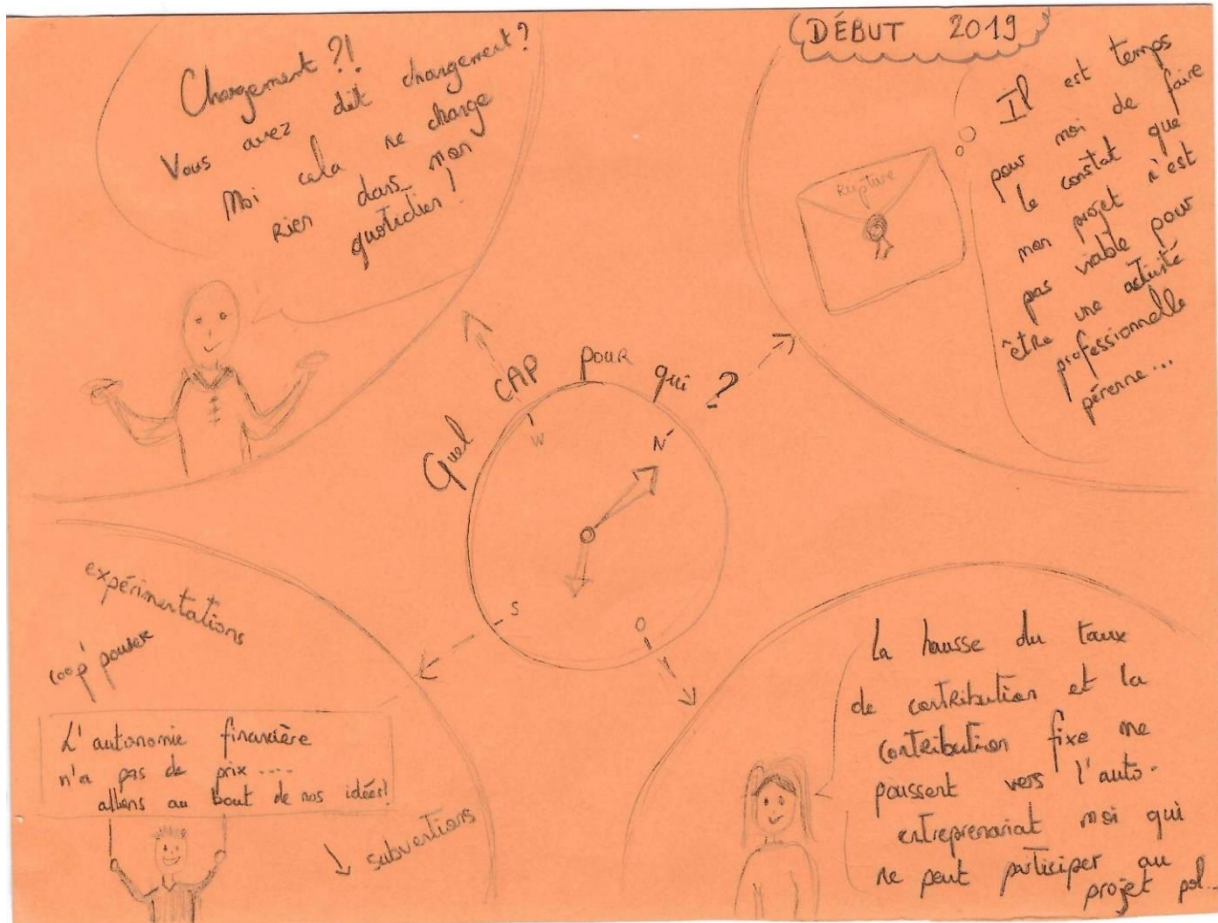 DÉBUT 2019
Changement ?!
Vous avez dit changement ?
Moi cela ne change
rien dans mon
quotidien !
Rupture
Il est temps
pour moi de faire
le constat que
mon projet n'est
pas viable pour
être une activité
professionnelle
pérenne...
Quel CAP pour qui ?
W
N
S
O
expérimentations
coop' pouser
L'autonomie financière
n'a pas de prix ....
allons au bout de nos idées!
↘ subventions
La hausse du taux
de contribution et la
contribution fixe me
poussent vers l'auto-
entreprenariat moi qui
ne peut participer au
projet pol...